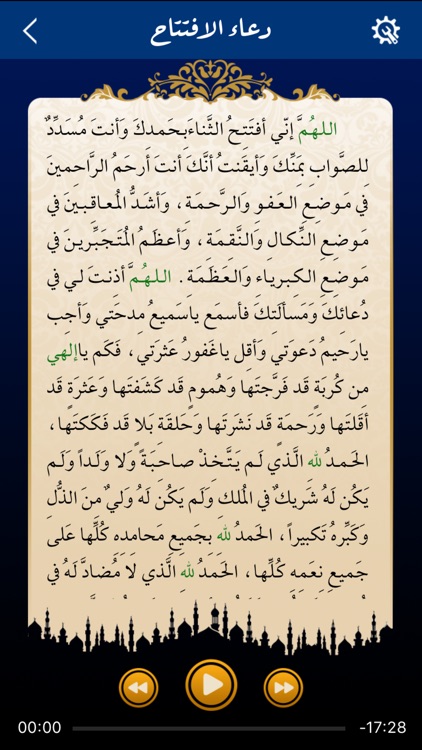 دعاء الافتتاح
اللهُمَّ إنّي أفتَتحُ الثَّناءَبِحَمدِكَ وَأنتَ مُسَدِّدٌ
للصَّوابِ بِمَنِّكَ وَأيقَنتُ أنَّكَ أنتَ أرحَمُ الرَّاحمينَ
في مَوضِعِ العَفوِ وَالرَّحمَة ، وَأشَدُّ المُعاقِبينَ في
مَوضِعِ النِّكالِ وَالنَّقِمَة ، وَأعظَمُ المُتَجَبِّرينَ في
مَوضِعِ الكبرياءِ وَالعَظَمَةِ . اللهُمَّ أذنتَ لي في
دُعائكَ وَمَسألَتِكَ فأسمَع ياسَميعُ مِدحَتي وَأجِب
يارَحيمُ دَعوَتي وَأقِل ياغَفورُ عَثرَتي ، فَكَم ياإلهي
مِن كُربَةٍ قَد فَرَّجتَها وَهُمومٍ قَد كَشَفتَها وَعَثرَةٍ قَد
أقَلتَها وَرَحمَة قَد نَشَرتَها وَحَلقَة بَلا قَد فَكَكتَها ،
الحَمدُ لله الَّذي لَم يَتَّخِذْ صاحِبَةً وَلا وَلَداً وَلَم
يَكُن لَهُ شَريكٌ في المُلكِ وَلَم يَكُن لَهُ وَليٌ منَ الذُّلِ
وَكَبِّرهُ تَكبيراً ، الحَمدُ لله بجَميعِ مَحامده كُلِّها عَلى
جَميعِ نِعَمِه كُلِّها ، الحَمدُ لله الَّذي لا مُضادَّ لَهُ في
00:00 -17:28